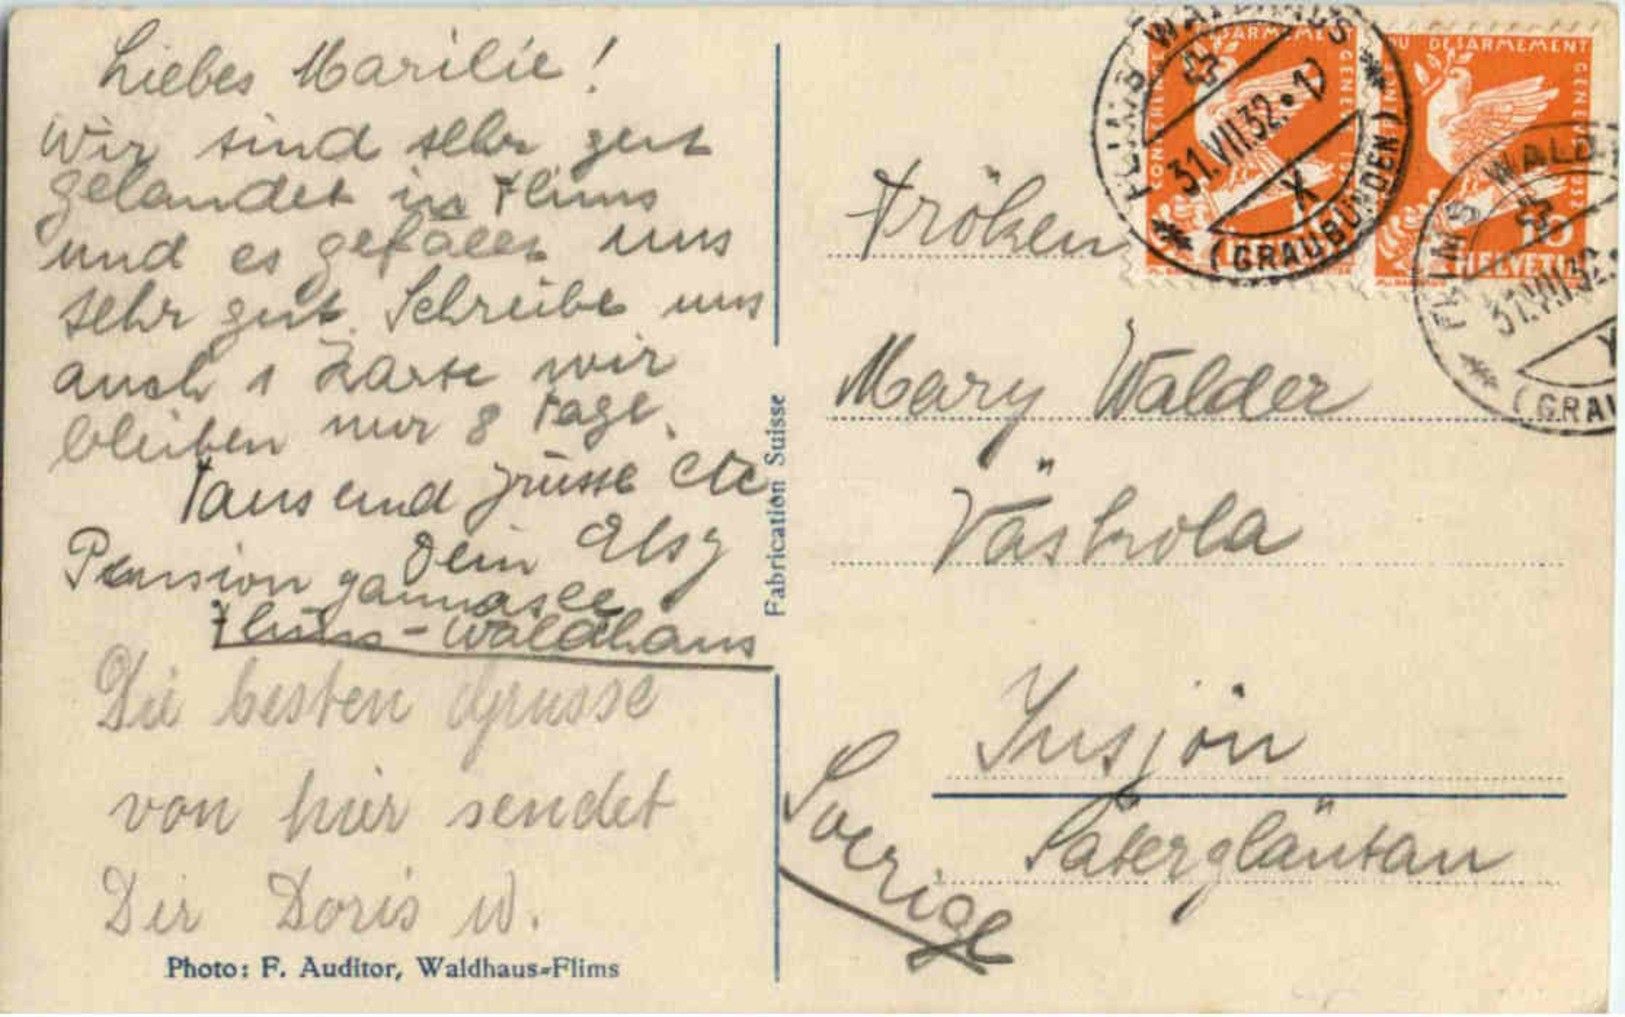 Liebes Marilie!
Wir sind sehr gut
gelandet in Flims
und es gefällt uns
sehr gut. Schreibe uns
auch 1 Karte wir
bleiben nur 8 Tage.
Tausend Grüsse etc
Dein Elsy
Pension
Flims-Waldhaus
Die besten Grüsse
von hier sendet
Dir Doris W.
Photo: F. Auditor, Waldhaus-Flims
Fabrication Suisse
FLIMS WALDHAUS
31.VII.32
X
(GRAUBÜNDEN)
DU DESARMEMENT
GENEVE 1932
HELVETIA
FLIMS WALD
31.VII.32
X
(GRAU
Fröken
Mary Walder
Västrola
Insjön
Sätergläntan
Sverige